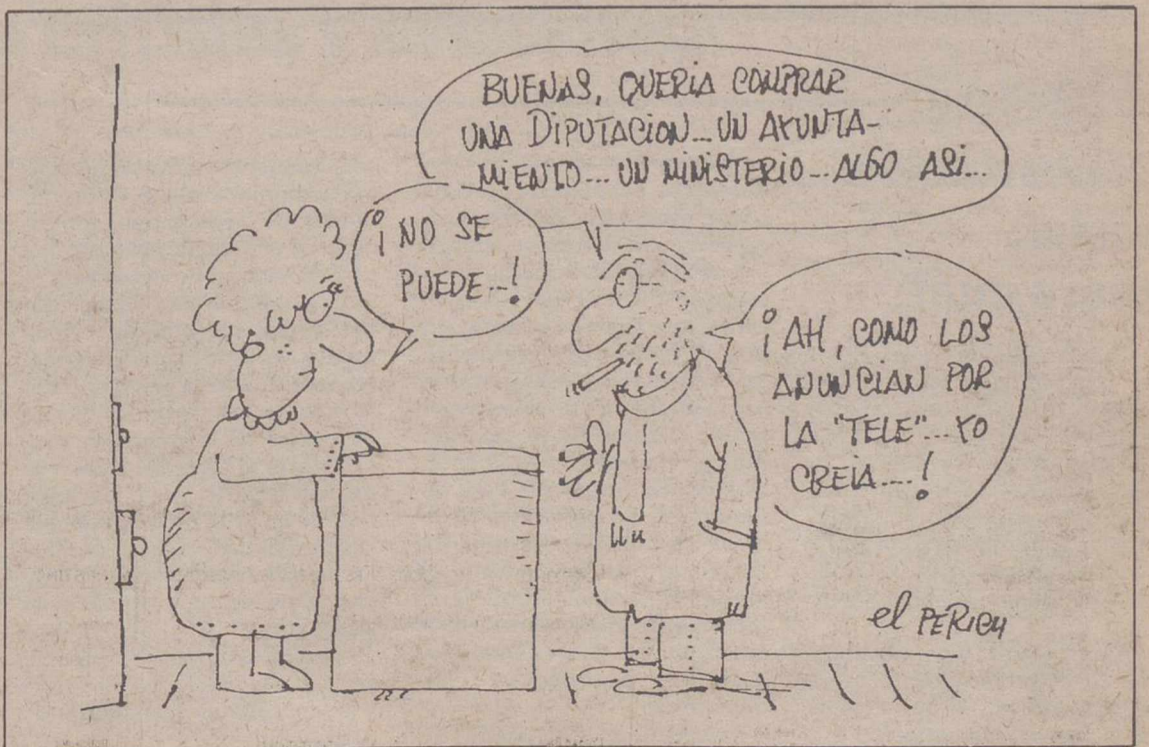 BUENAS, QUERIA COMPRAR
UNA DIPUTACION... UN AYUNTA-
MIENTO... UN MINISTERIO... ALGO ASI...
¡NO SE
PUEDE...!
¡AH, COMO LOS
ANUNCIAN POR
LA "TELE"... YO
CREIA....!
el PERICH